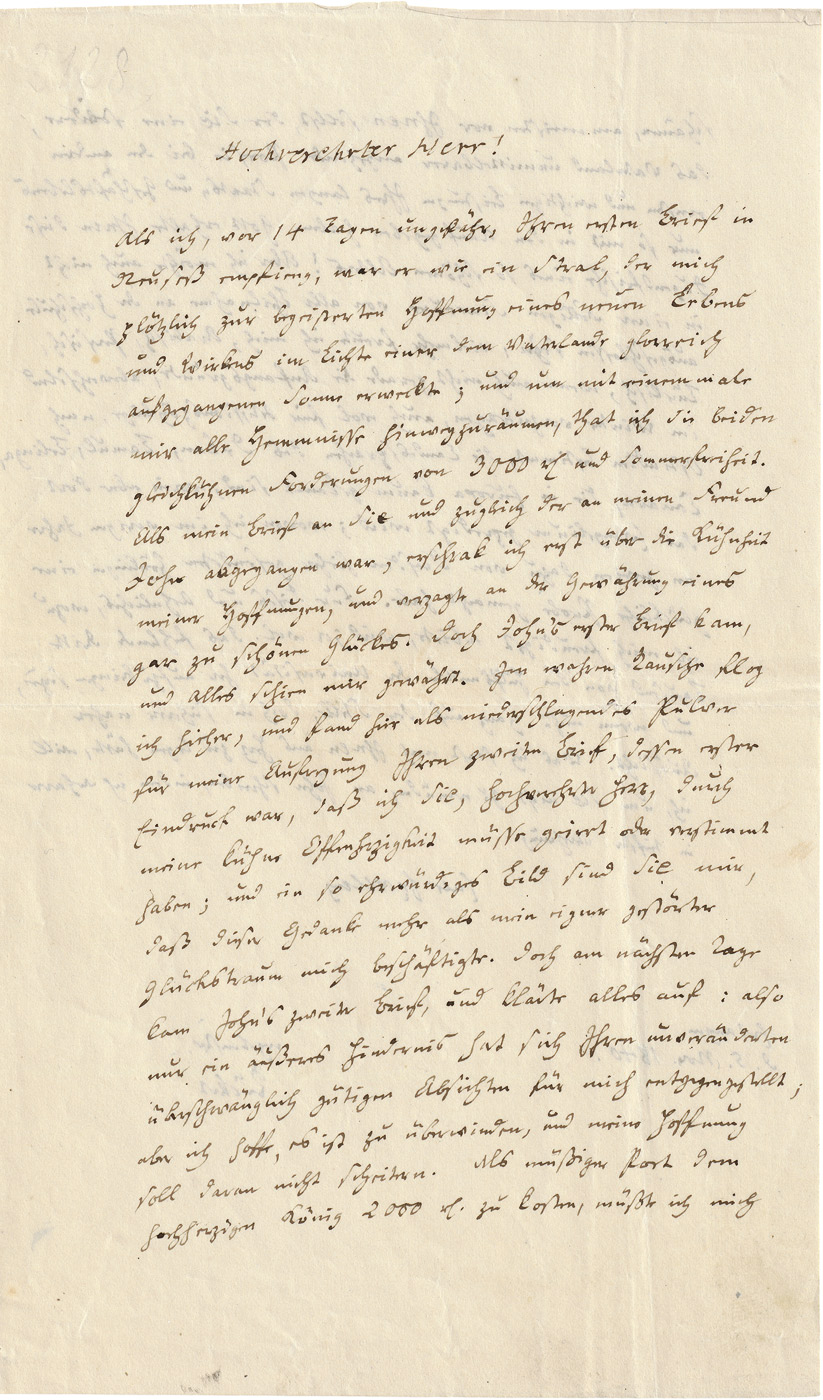 Hochverehrter Herr!
Als ich, vor 14 Tagen ungefähr, Ihren ersten Brief in
Neuseß empfieng, war er wie ein Stral, der mich
plötzlich zur begeisterten Hoffnung eines neuen Lebens
und Wirkens im Lichte einer dem Vaterlande glorreich
aufgegangenen Sonne erweckte; und um mit einem male
mir alle Hemmnisse hinwegzuräumen, that ich die beiden
gleichkühnen Forderungen von 3000 rh und Sommerfreiheit.
Als mein Brief an Sie und zugleich der an meinen Freund
John abgegangen war, erschrak ich erst über die Kühnheit
meiner Hoffnungen, und verzagte an der Gewährung eines
gar zu schönen Glückes. Doch John's erster Brief kam,
und alles schien mir gewährt. Im wahren Rausche flog
ich hieher, und fand hier als niederschlagendes Pulver
für meine Aufregung Ihren zweiten Brief, dessen erster
Eindruck war, daß ich Sie, hochverehrter Herr, durch
meine kühne Offenherzigkeit müsse geirrt oder verstimmt
haben; und ein so ehrwürdiges Bild sind Sie mir,
daß dieser Gedanke mehr als mein eigner gestörter
Glückstraum mich beschäftigte. Doch am nächsten Tage
kam John's zweiter Brief, und klärte alles auf: also
nur ein äußeres Hindernis hat sich Ihren unveränderten
überschwänglich gütigen Absichten für mich entgegengestellt;
aber ich hoffe, es ist zu überwinden, und meine Hoffnung
soll daran nicht scheitern. Als müßiger Poet dem
hochherzigen König 2000 rh. zu kosten, müßte ich mich